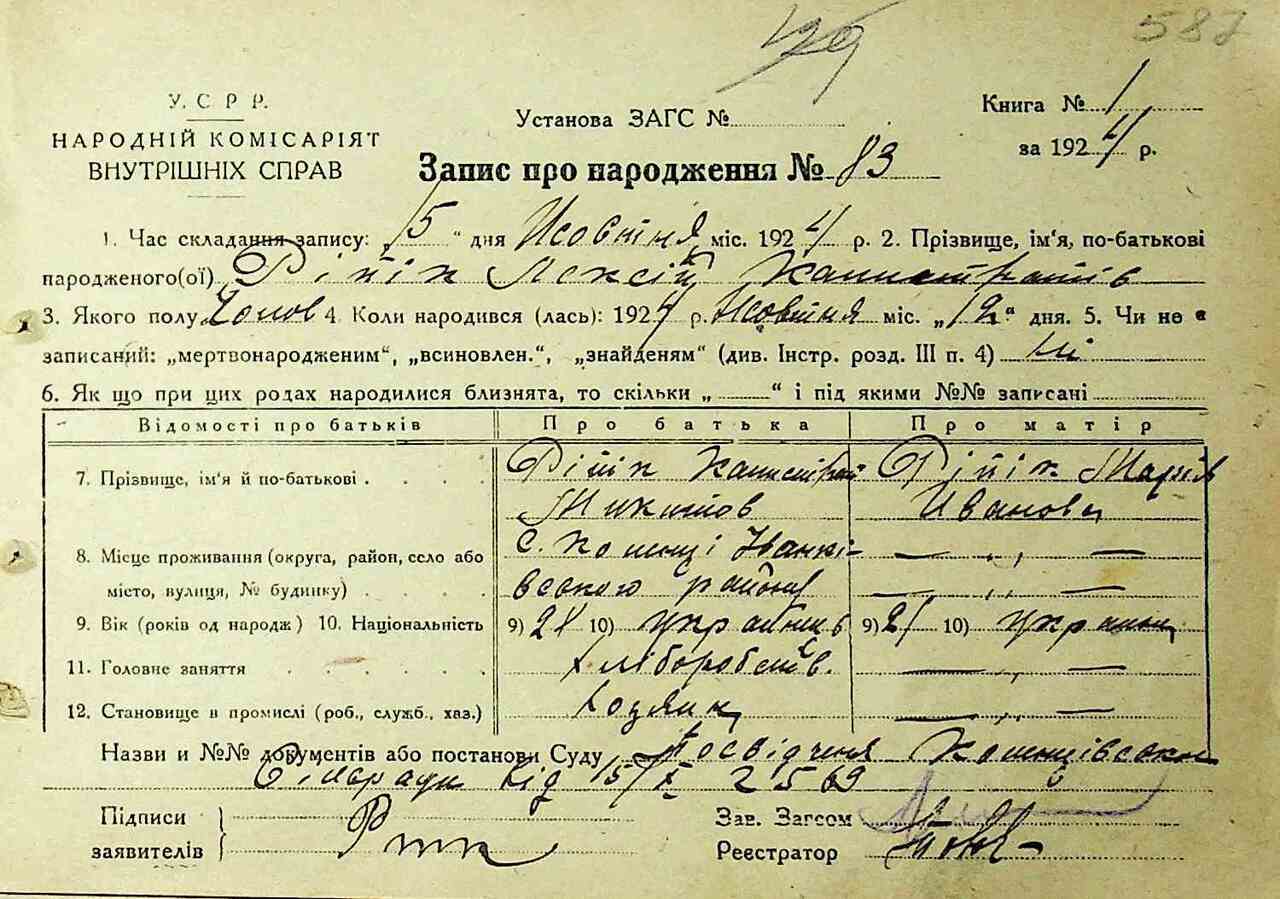 587
У. С. Р. Р.
НАРОДНІЙ КОМІСАРІЯТ
ВНУТРІШНІХ СПРАВ
Установа ЗАГС №
Книга № 1
за 1924 р.
Запис про народження № 83
1. Час складання запису: „15“ дня Жовтня міс. 1924 р. 2. Прізвище, ім'я, по-батькові
народженого(ої) Лексій Калистратів
3. Якого полу Чолов 4. Коли народився (лась): 1924 р. Жовтня міс. „12“ дня. 5. Чи не є
записаний: „мертвонародженим“, „всиновлен.“, „знайденям“ (див. Інстр. розд. III п. 4) ні
6. Як що при цих родах народилися близнята, то скільки „ “ і під якими №№ записані
Відомості про батьків Про батька Про матір
7. Прізвище, ім'я й по-батькові Калистрат Марія
Микитов Иванова
8. Місце проживання (округа, район, село або с. Іванкі- — „ —
місто, вулиця, № будинку) вського району — „ —
9. Вік (років од народж) 10. Національність 9) 21 10) українець 9) 21 10) українк
11. Головне заняття хліборобств. — „ —
12. Становище в промислі (роб., служб., хаз.) хозяин — „ —
Назви и №№ документів або постанови Суду Посвідченя
Сільради від 15/X 2569
Підписи
заявителів
Зав. Загсом
Реєстратор